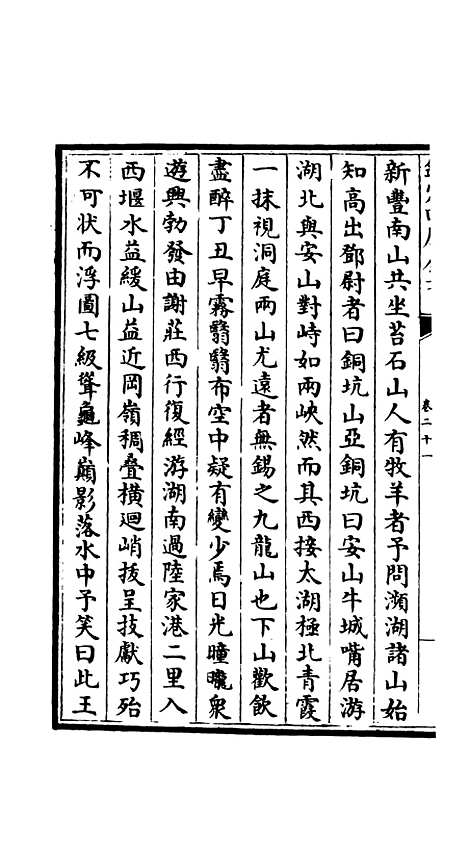 欽定四庫全書
卷二十一
新豐南山共坐苔石山人有牧羊者予問瀕湖諸山始
知高出鄧尉者曰銅坑山亞銅坑曰安山牛城嘴居游
湖北與安山對峙如兩峽然而其西接太湖極北青霞
一抹視洞庭兩山尤遠者無錫之九龍山也下山歡飲
盡醉丁丑早霧翳翳布空中疑有變少焉日光曈曨衆
遊興勃發由謝莊西行復經游湖南過陸家港二里入
西堰水益緩山益近岡嶺稠疊橫迴峭拔呈技獻巧殆
不可状而浮圖七級聳龜峰巔影落水中予笑曰此王